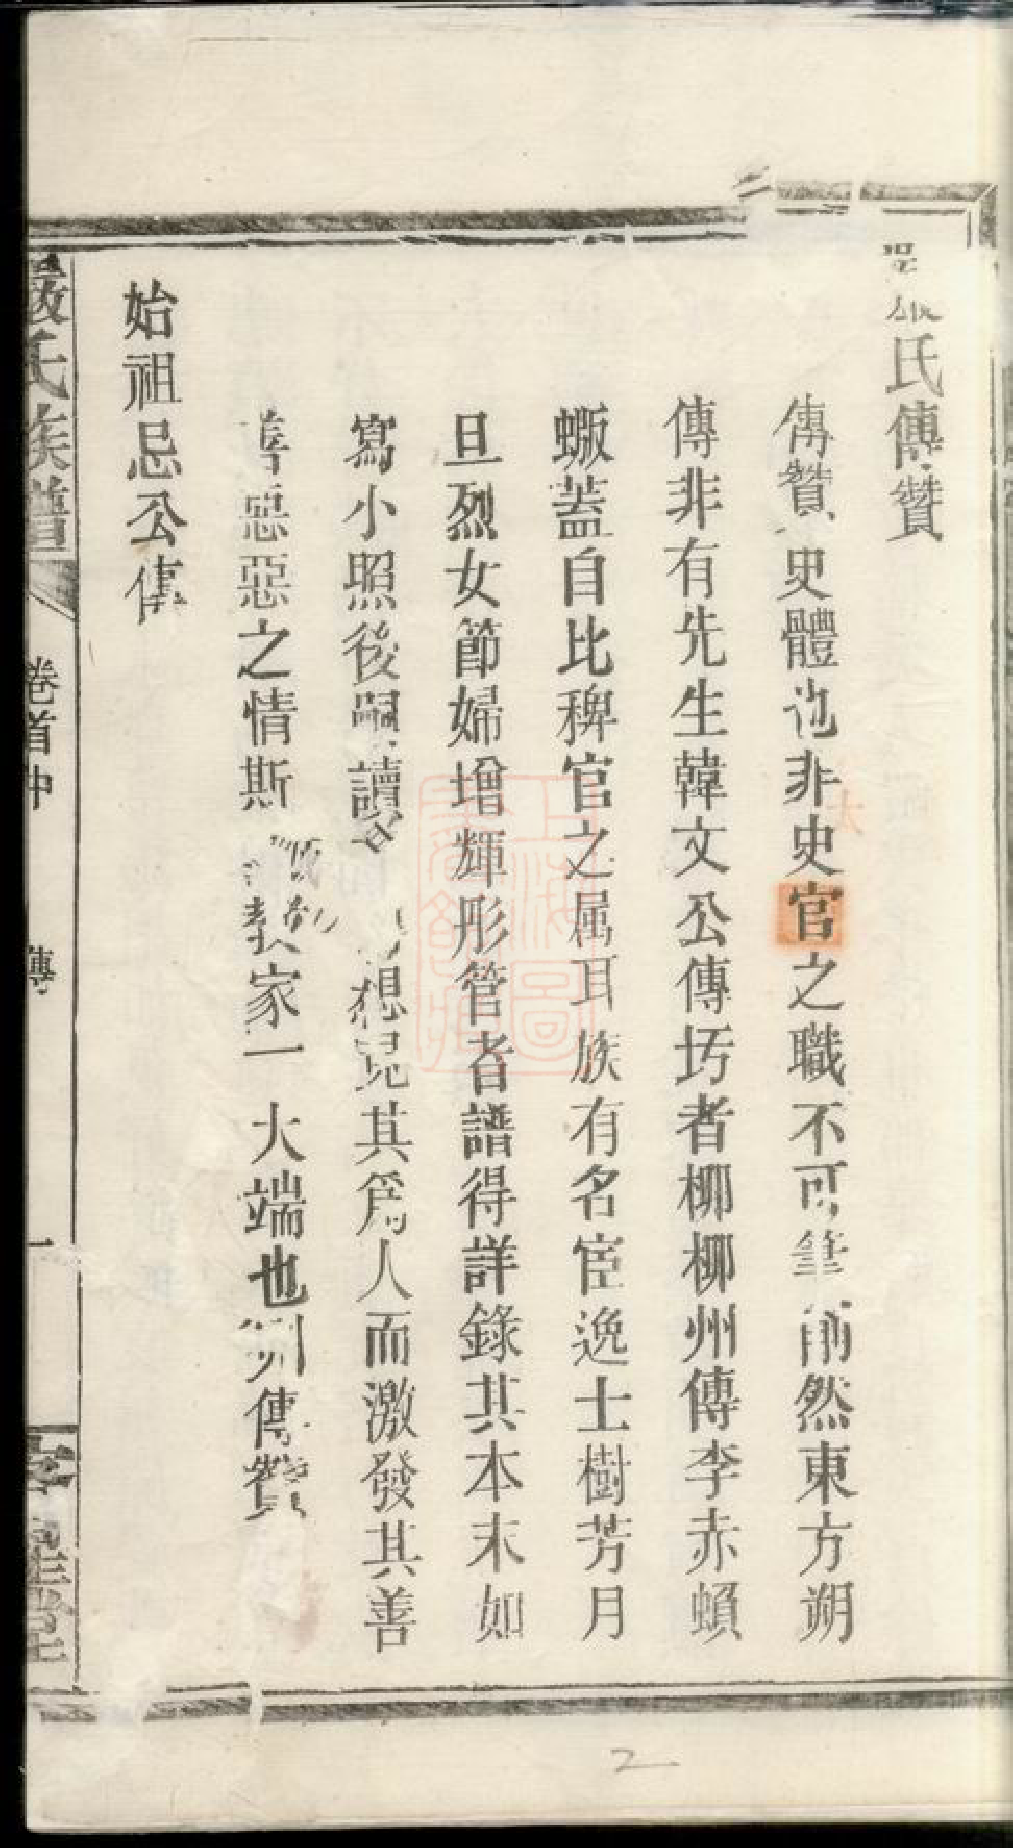 嚴氏傳贊
傳贊史體也非史官之職不可筆削然東方朔
傳非有先生韓文公傳圬者柳柳州傳李赤蝜
蝂蓋自比稗官之屬耳族有名宦逸士樹芳月
旦烈女節婦增輝彤管者譜得詳錄其本末如
寫小照後嗣讀 想見其爲人而激發其善
善惡惡之情斯 教家一大端也列傳贊
始祖忌公傳
嚴氏族譜
卷首中
傳
一
堂
上海圖書館藏
2